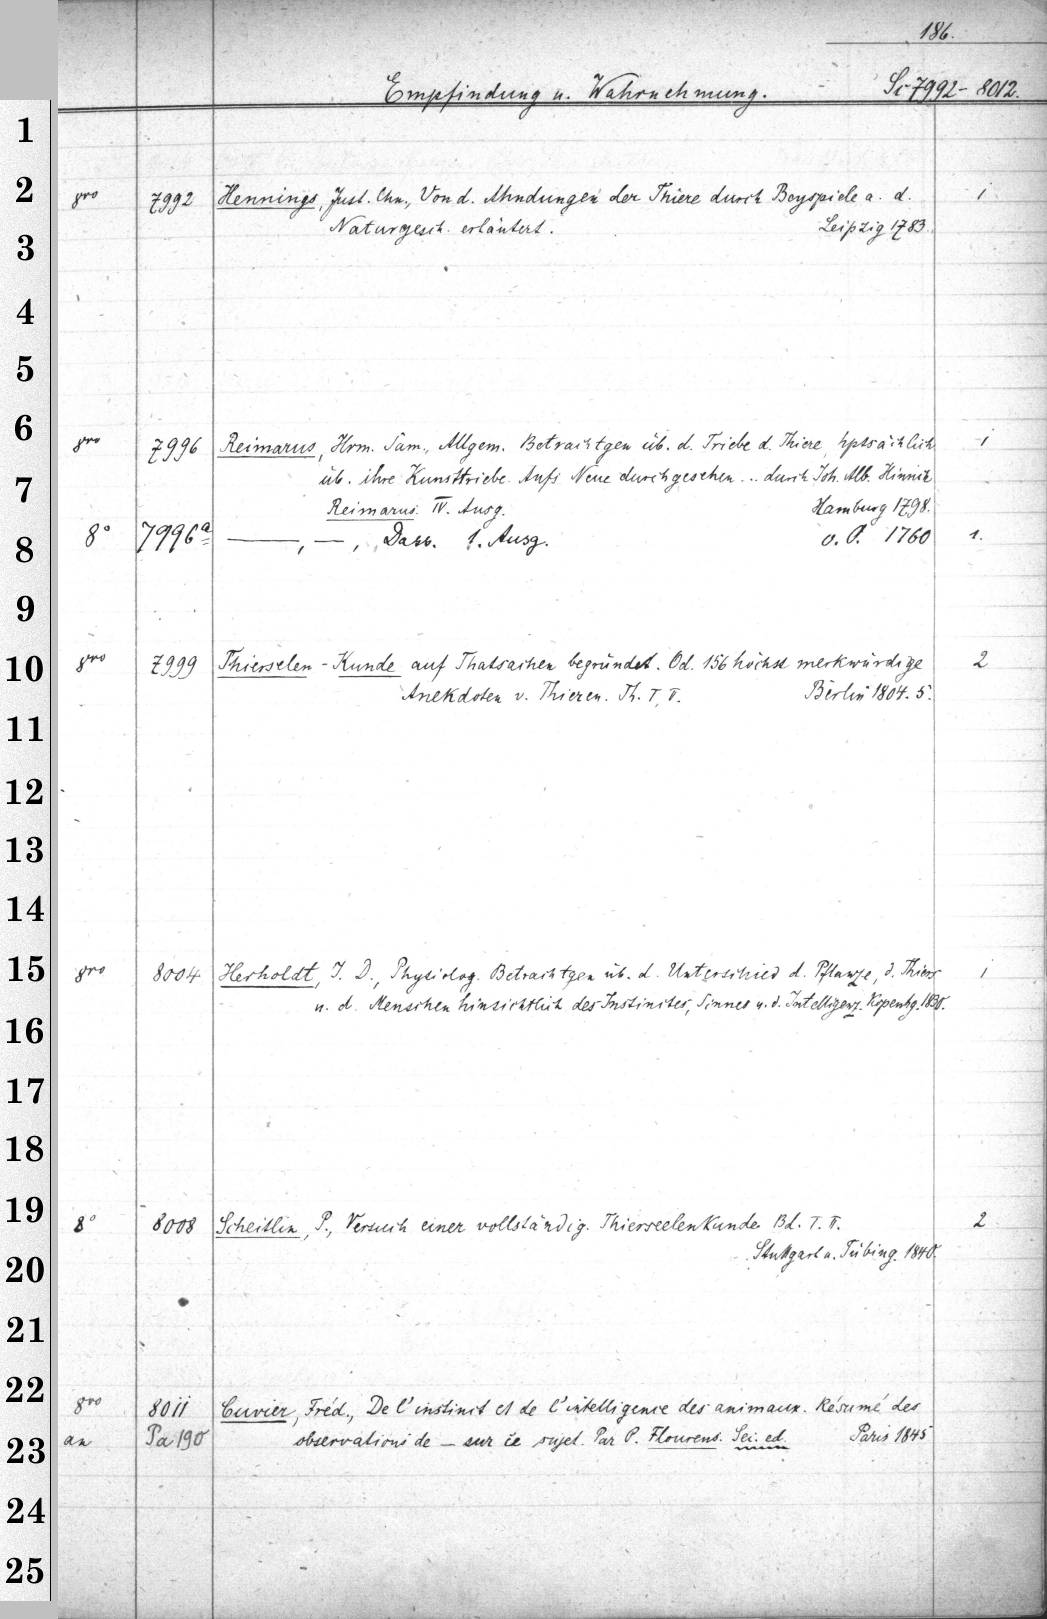 186.
Empfindung u. Wahrnehmung. Sc 7992 - 8012.
1
2 8vo 7992 Hennings, Just. Chn., Von d. Ahndungen der Thiere durch Beyspiele a. d. 1
3 Naturgesch. erläutert. Leipzig 1783.
4
5
6 8vo 7996 Reimarus, Hrm. Sam., Allgem. Betrachtgen üb. d. Triebe d. Thiere, hptsächlich 1
7 üb. ihre Kunsttriebe. Aufs Neue durchgesehen ... durch Joh. Alb. Hinrich
Reimarus. IV. Ausg. Hamburg 1798.
8 8° 7996a ———, —, Dass. 1. Ausg. o. O. 1760 1.
9
10 8vo 7999 Thierselen - Kunde auf Thatsachen begründet. Od. 156 höchst merkwürdige 2
Anekdoten v. Thieren. Th. I, II. Berlin 1804. 5.
11
12
13
14
15 8vo 8004 Herholdt, J. D., Physiolog. Betrachtgen üb. d. Unterschied d. Pflanze, d. Thiers 1
u. d. Menschen hinsichtlich des Instinctes, Sinnes u. d. Intelligenz. Kopenhg. 1830.
16
17
18
19 8° 8008 Scheitlin, P., Versuch einer vollständig. Thierseelenkunde. Bd. I. II. 2
Stuttgart u. Tübing. 1840.
20
21
22 8vo 8011 Cuvier, Fréd., De l'instinct et de l'intelligence des animaux. Résumé des
23 an Pa 190 observations de — sur ce sujet. Par P. Flourens. Sec. ed. Paris 1845
24
25